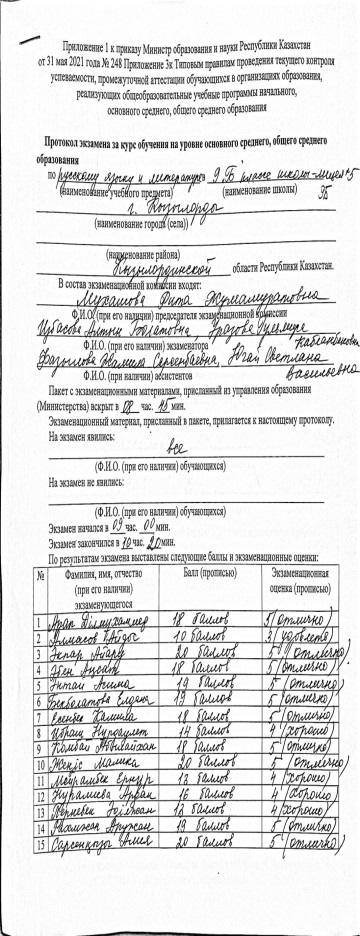 Приложение 1 к приказу Министр образования и науки Республики Казахстан
от 31 мая 2021 года № 248 Приложение 3к Типовым правилам проведения текущего контроля
успеваемости, промежуточной аттестации обучающихся в организациях образования,
реализующих общеобразовательные учебные программы начального,
основного среднего, общего среднего образования
Протокол экзамена за курс обучения на уровне основного среднего, общего среднего
образования
по русскому языку и литературе 9 "Б" класса школы-лицея №5
(наименование учебного предмета) (наименование школы) 9Б
г. Кызылорды
(наименование города (села))
(наименование района)
Кызылординской области Республики Казахстан.
В состав экзаменационной комиссии входят:
Мухашова Рита Жумамуратовна
Ф.И.О. (при его наличии) председателя экзаменационной комиссии
Болатовна
Ф.И.О. (при его наличии) экзаменатора
Фазылова Жамила Серсенбаевна, Югай Светлана
Ф.И.О. (при наличии) ассистентов Васильевна
Пакет с экзаменационными материалами, присланный из управления образования
(Министерства) вскрыт в 08 час. 45 мин.
Экзаменационный материал, присланный в пакете, прилагается к настоящему протоколу.
На экзамен явились:
все
(Ф.И.О. (при его наличии) обучающихся)
На экзамен не явились:
(Ф.И.О. (при его наличии) обучающихся)
Экзамен начался в 09 час. 00 мин.
Экзамен закончился в 10 час. 20 мин.
По результатам экзамена выставлены следующие баллы и экзаменационные оценки:
№ Фамилия, имя, отчество Балл (прописью) Экзаменационная
(при его наличии) оценка (прописью)
экзаменующегося
1 Арап Дінмухаммед 18 баллов 5 (отлично)
2 Алмасов 10 баллов 3
3 Экпар 20 баллов 5 (отлично)
4 18 баллов 5 (отлично)
5 19 баллов 5 (отлично)
6 Бекболатова Елдана 19 баллов 5 (отлично)
7 Есенбек Камила 18 баллов 5 (отлично)
8 Ибраш Нурдаулет 14 баллов 4 (хорошо)
9 Абылайхан 18 баллов 5 (отлично)
10 Жеңіс Малика 20 баллов 5 (отлично)
11 13 баллов 4 (хорошо)
12 Нуралиева 16 баллов 4 (хорошо)
13 13 баллов 4 (хорошо)
14 Аружан 19 баллов 5 (отлично)
15 Сарсенқызы 20 баллов 5 (отлично)